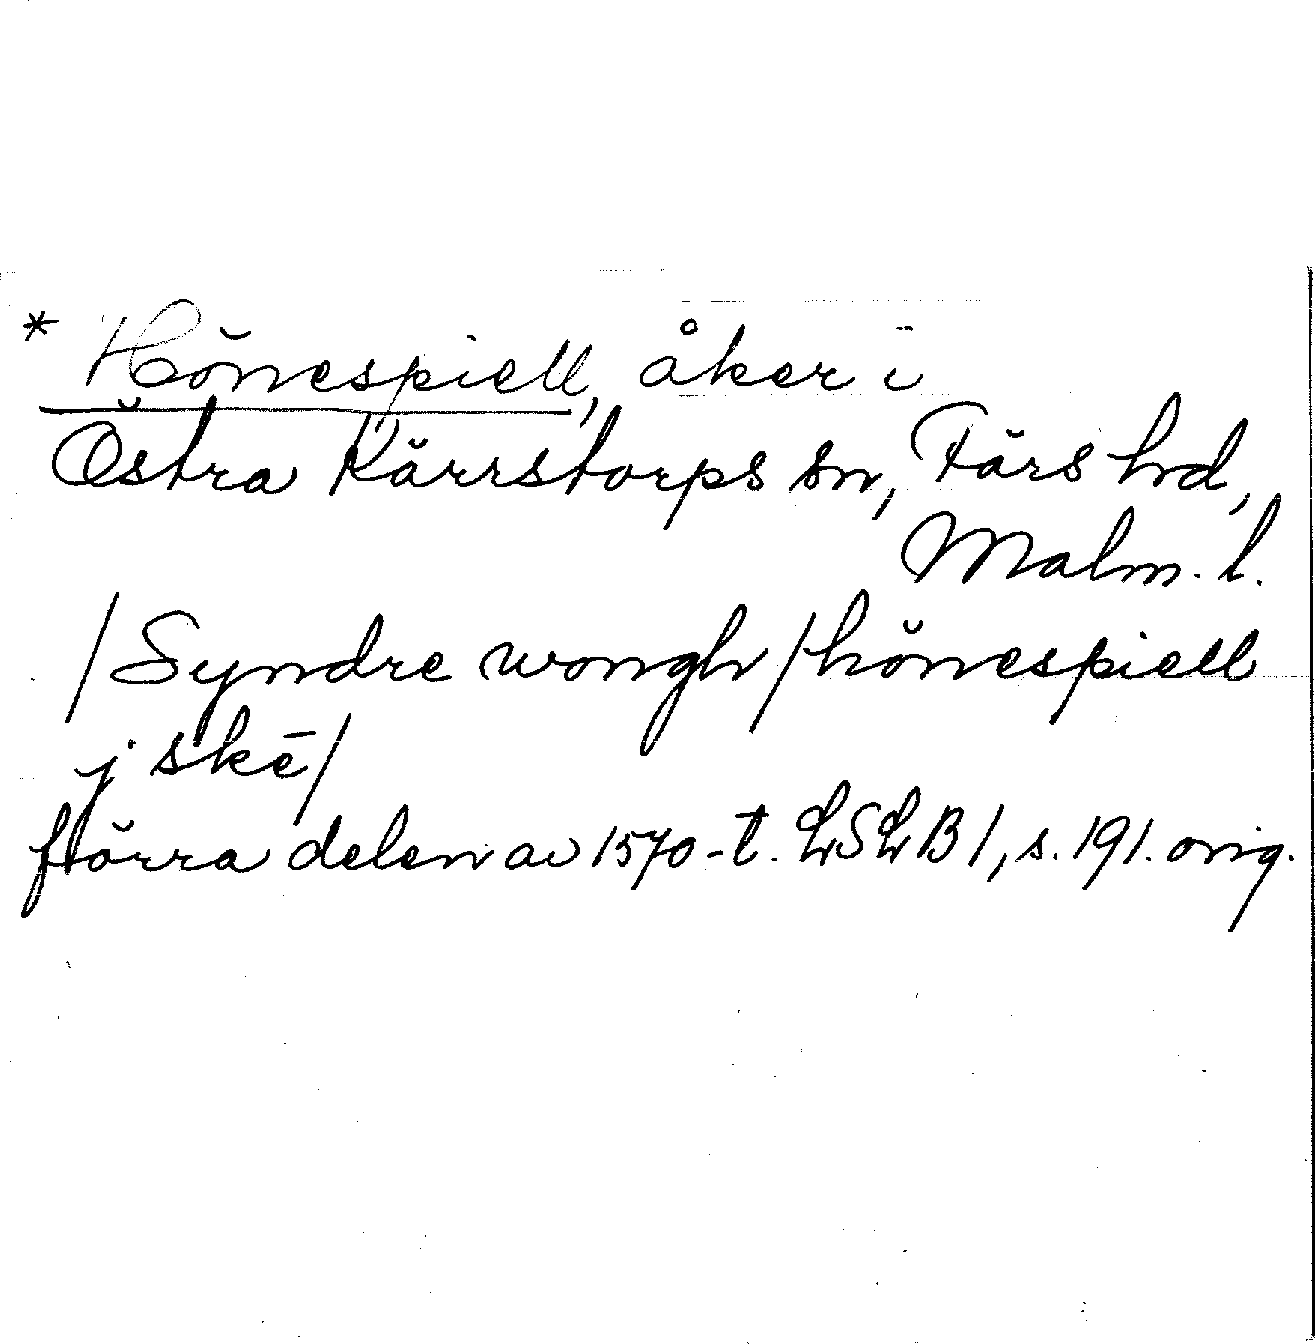 * Hönespiell, åker i
Östra Kärrstorps sn, Färs hd,
Malm. l.
/Syndre wongh/hönespiell
j skē/
förra delen av 1570-t. LSLB 1, s. 191. orig.